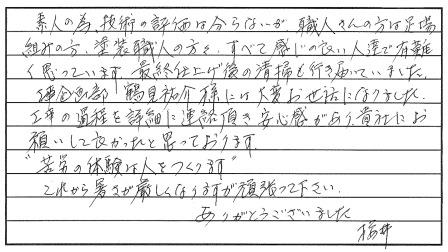 素人の為、技術の評価は分らないが職人さんの方は足場
組みの方、塗装職人の方々、すべて感じの良い人達で有難
く思っています。最終仕上げ後の清掃も行き届いていました。
企画部 鶴見祐介様には大変お世話になりました。
工事の過程を詳細に連絡頂き安心感があり、貴社にお
願いして良かったと思っております。
"苦労の体験は人をつくります"
これから暑さが厳しくなりますが頑張って下さい。
ありがとうございました